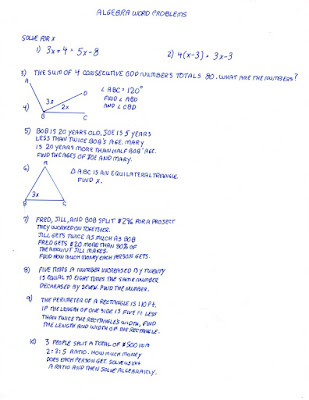 ALGEBRA WORD PROBLEMS
SOLVE FOR X
1) 3x+4 = 5x-8
2) 4(x-3) = 3x-3
3) THE SUM OF 4 CONSECUTIVE ODD NUMBERS TOTALS 80. WHAT ARE THE NUMBERS?
A
∠ABC = 120°
D
3x
FIND ∠ABD
2x
AND ∠CBD
4)
B
C
5) BOB IS 20 YEARS OLD, JOE IS 5 YEARS
LESS THAN TWICE BOB'S AGE. MARY
IS 20 YEARS MORE THAN HALF BOB'S AGE.
FIND THE AGES OF JOE AND MARY.
6)
A
△ABC IS AN EQUILATERAL TRIANGLE
FIND X.
3x
B
C
7) FRED, JILL, AND BOB SPLIT $296 FOR A PROJECT
THEY WORKED ON TOGETHER.
JILL GETS TWICE AS MUCH AS BOB
FRED GETS $20 MORE THAN 90% OF
THE AMOUNT JILL MAKES.
FIND HOW MUCH MONEY EACH PERSON GETS.
8) FIVE TIMES A NUMBER INCREASED BY TWENTY
IS EQUAL TO EIGHT TIMES THE SAME NUMBER
DECREASED BY SEVEN. FIND THE NUMBER.
9) THE PERIMETER OF A RECTANGLE IS 110 FT.
IF THE LENGTH OF ONE SIDE IS FIVE FT LESS
THAN TWICE THE RECTANGLE'S WIDTH, FIND
THE LENGTH AND WIDTH OF THE RECTANGLE.
10) 3 PEOPLE SPLIT A TOTAL OF $500 IN A
2:3:5 RATIO. HOW MUCH MONEY
DOES EACH PERSON GET. SOLVE USING
A RATIO AND THEN SOLVE ALGEBRAICALLY.